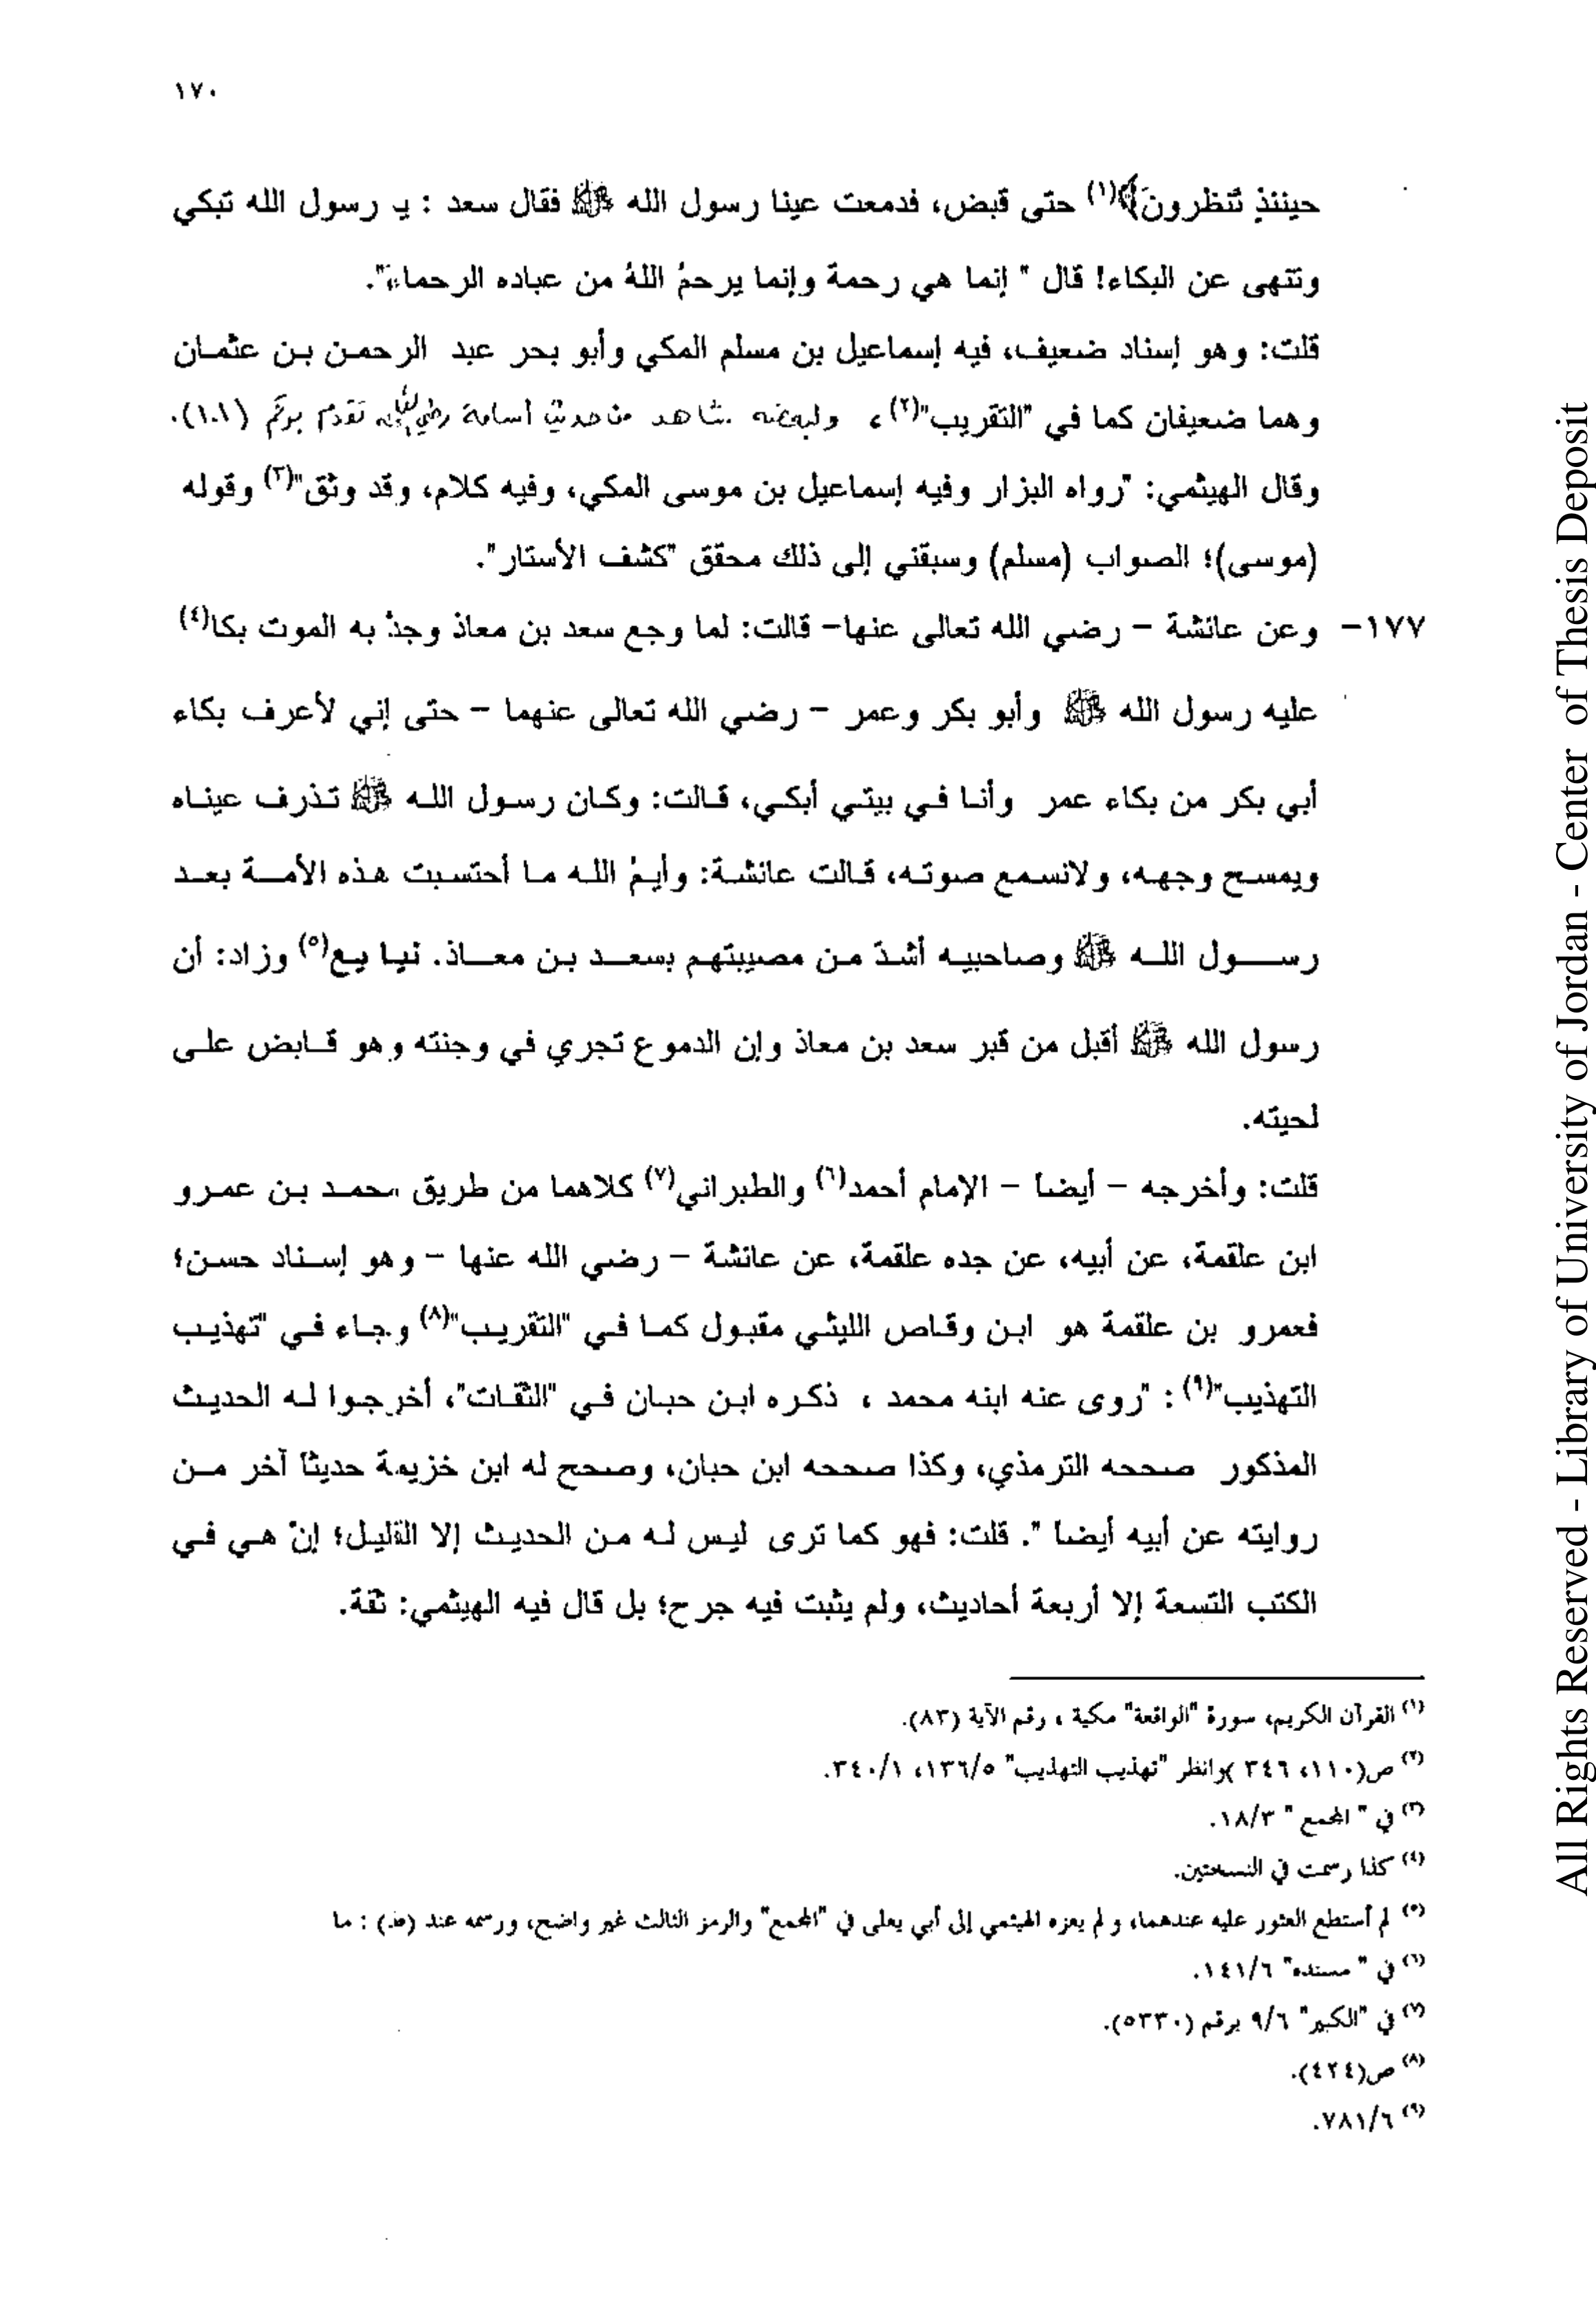 ١٧٠
حينئذٍ تَنظرونَ﴾(١) حتى قبض، فدمعت عينا رسول الله ﷺ فقال سعد : يـ رسول الله تبكي
وتنهى عن البكاء! قال " إنما هي رحمة وإنما يرحمُ اللهُ من عباده الرحماء".
قلت: وهو إسناد ضعيف، فيه إسماعيل بن مسلم المكي وأبو بحر عبد الرحمن بن عثمان
وهما ضعيفان كما في "التقريب"(٢)، ولبعضه شاهد من حديث أسامة رضي الله عنه تقدم برقم (١٠١).
وقال الهيثمي: "رواه البزار وفيه إسماعيل بن موسى المكي، وفيه كلام، وقد وثق"(٣) وقوله
(موسى)؛ الصواب (مسلم) وسبقني إلى ذلك محقق "كشف الأستار".
١٧٧- وعن عائشة – رضي الله تعالى عنها– قالت: لما وجع سعد بن معاذ وجدّ به الموت بكا(٤)
عليه رسول الله ﷺ وأبو بكر وعمر – رضي الله تعالى عنهما – حتى إني لأعرف بكاء
أبي بكر من بكاء عمر وأنا في بيتي أبكي، قالت: وكان رسول الله ﷺ تذرف عيناه
ويمسح وجهه، ولانسمع صوته، قالت عائشة: وأيمُ الله ما أحتسبت هذه الأمة بعد
رسول الله ﷺ وصاحبيه أشدّ من مصيبتهم بسعد بن معاذ. نيا يع(٥) وزاد: أن
رسول الله ﷺ أقبل من قبر سعد بن معاذ وإن الدموع تجري في وجنته وهو قابض على
لحيته.
قلت: وأخرجه – أيضا – الإمام أحمد(٦) والطبراني(٧) كلاهما من طريق محمد بن عمرو
ابن علقمة، عن أبيه، عن جده علقمة، عن عائشة – رضي الله عنها – وهو إسناد حسن؛
فعمرو بن علقمة هو ابن وقاص الليثي مقبول كما في "التقريب"(٨) وجاء في "تهذيب
التهذيب"(٩) : "روى عنه ابنه محمد ، ذكره ابن حبان في "الثقات"، أخرجوا له الحديث
المذكور صححه الترمذي، وكذا صححه ابن حبان، وصحح له ابن خزيمة حديثا آخر من
روايته عن أبيه أيضا ". قلت: فهو كما ترى ليس له من الحديث إلا القليل؛ إنْ هي في
الكتب التسعة إلا أربعة أحاديث، ولم يثبت فيه جرح؛ بل قال فيه الهيثمي: ثقة.
(١) القرآن الكريم، سورة "الواقعة" مكية ، رقم الآية (٨٣).
(٢) ص(١١٠، ٣٤٦ )وانظر "تهذيب التهذيب" ١٣٦/٥، ٣٤٠/١.
(٣) في " المجمع " ١٨/٣.
(٤) كذا رسمت في النسختين.
(٥) لم أستطع العثور عليه عندهما، ولم يعزه الهيثمي إلى أبي يعلى في "المجمع" والرمز الثالث غير واضح، ورسمه عند (ط) : ما
(٦) في " مسنده" ١٤١/٦.
(٧) في "الكبير" ٩/٦ برقم (٥٣٣٠).
(٨) ص(٤٢٤).
(٩) ٧٨١/٦.
All Rights Reserved - Library of University of Jordan - Center of Thesis Deposit